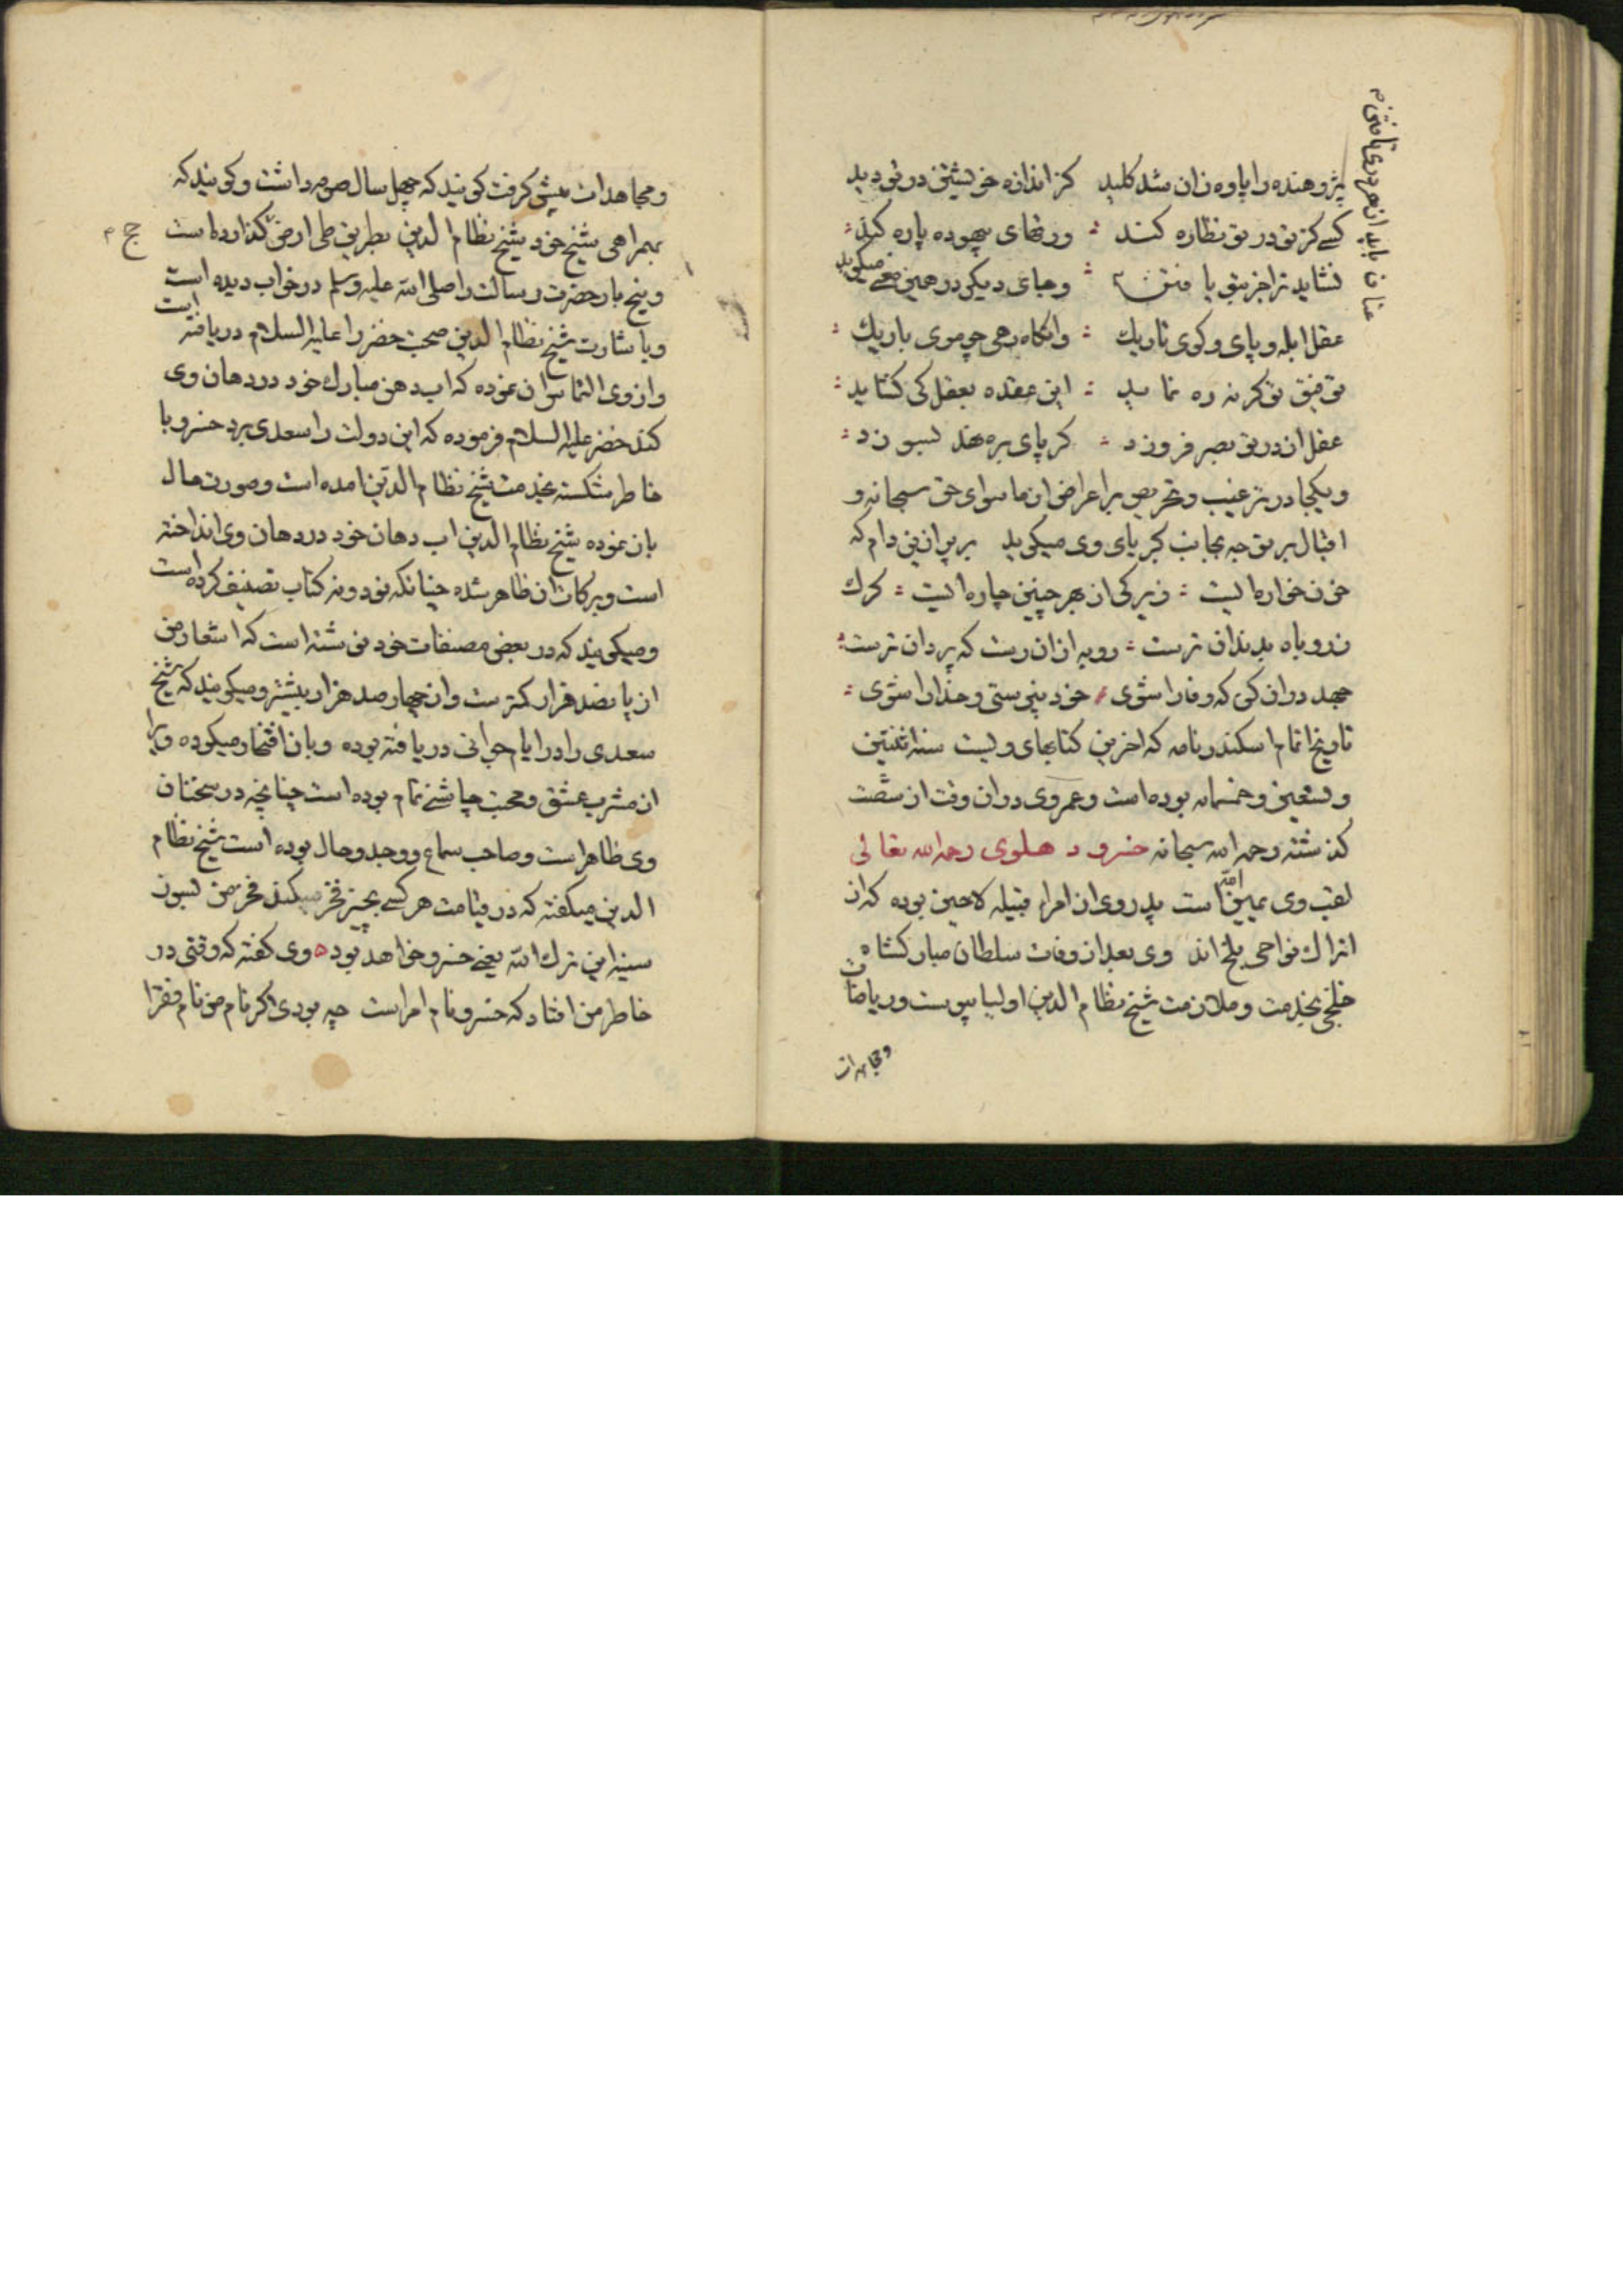 پژوهنده را یاوه زان شد کلید کز اندازه خویشتن در تو دید
کسی کز تو در تو نظاره کند ورقهای بیهوده پاره کند
نشاید ترا جز بتو یافتن وجای دیگر در همین معنی میگوید
عنان باید از هر دری تافتن
عقل ابله و پای و کوی تاریک وانگاه رهی چو موی باریک
توفیق تو گرنه ره نماید این عقده بعقل کی گشاید
عقل از در تو بصر فروزد گر پای برون نهد بسوزد
ویکجا در ترغیب و تحریص بر اعراض از ماسوای حق سبحانه و
اقبال بر توجه بجانب کبریای وی میگوید بر پر ازین دام که
خون خواره ایست زیرکی از بهر چنین چاره ایست گرگ
ز روباه بدندان ترست روبه ازان رست که پردان ترست
جهد دران کن که وفا را شوی خود نپرستی و خدا را شوی
تاریخ اتمام اسکندرنامه که اخرین کتابهای ویست سنه اثنتین
و تسعین و خمسمایه بوده است و عمر وی دران وقت از شصت
گذشته رحمه الله سبحانه خسرو دهلوی رحمه الله تعالی
لقب وی یمین الدین است پدر وی از امراء قبیله لاچین بوده که از
اتراک نواحی بلخ اند وی بعد از وفات سلطان مبارکشاه
خلجی بخدمت و ملازمت شیخ نظام الدین اولیا پیوست و ریاضات
و مجاهدات
و مجاهدات پیش گرفت گویند که چهل سال صوم داشت و گویند که
بهمراهی شیخ خود شیخ نظام الدین بطریق طی ارض حج گذارده است
و پنج بار حضرت رسالت را صلی الله علیه وسلم در خواب دیده است
و باشارت شیخ نظام الدین صحبت خضر را علیه السلام دریافته است
و از وی التماس ان نموده که اب دهن مبارک خود در دهان وی
کند خضر علیه السلام فرموده که این دولت را سعدی برد خسرو با
خاطر شکسته بخدمت شیخ نظام الدین امده است و صورت حال
باز نموده شیخ نظام الدین اب دهان خود در دهان وی انداخته
است و برکات ان ظاهر شده چنانکه نود و نه کتاب تصنیف کرده است
و میگویند که در بعضی مصنفات خود نوشته است که اشعار من
از پانصد هزار کمترست و از چهار صد هزار بیشتر و میگویند که شیخ
سعدی را در ایام جوانی دریافته بوده و بان افتخار میکرده ویرا
از مشرب عشق و محبت چاشنی تمام بوده است چنانچه در سخنان
وی ظاهر است و صاحب سماع و وجد و حال بوده است شیخ نظام
الدین میگفته که در قیامت هر کسی بچیزی فخر میکند فخر من بسوز
سینه این ترک الله یعنی خسرو خواهد بود وی گفته که وقتی در
خاطر من افتاد که خسرو نام امراست چه بودی اگر نام من نام فقرا